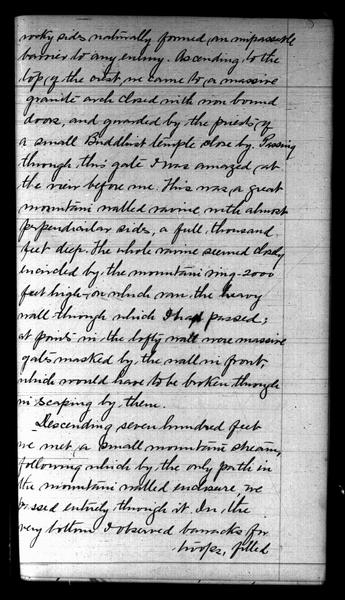 rocky sides naturally formed an impassable
barrier to any enemy. Ascending to the
top of the crest we came to a massive
granite arch closed with iron bound
doors, and guarded by the priests of
a small Buddhist temple close by. Passing
through this gate I was amazed at
the view before me. This was a great
mountain walled ravine with almost
perpendicular sides, a full thousand
feet deep. The whole ravine seemed closely
encircled by the mountain ring - 2000
feet high - on which ran the heavy
wall through which I had passed;
at points in the lofty wall were massive
gates masked by the wall in front,
which would have to be broken through
in escaping by them.
Descending seven hundred feet
we met a small mountain stream,
following which by the only path in
the mountain walled enclosure, we
passed entirely through it. In the
very bottom I observed barracks for
troops, filled